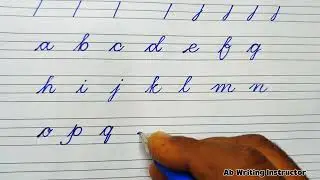 a b c d e f g
h i j k l m n
o p q
Ab Writing Instructor